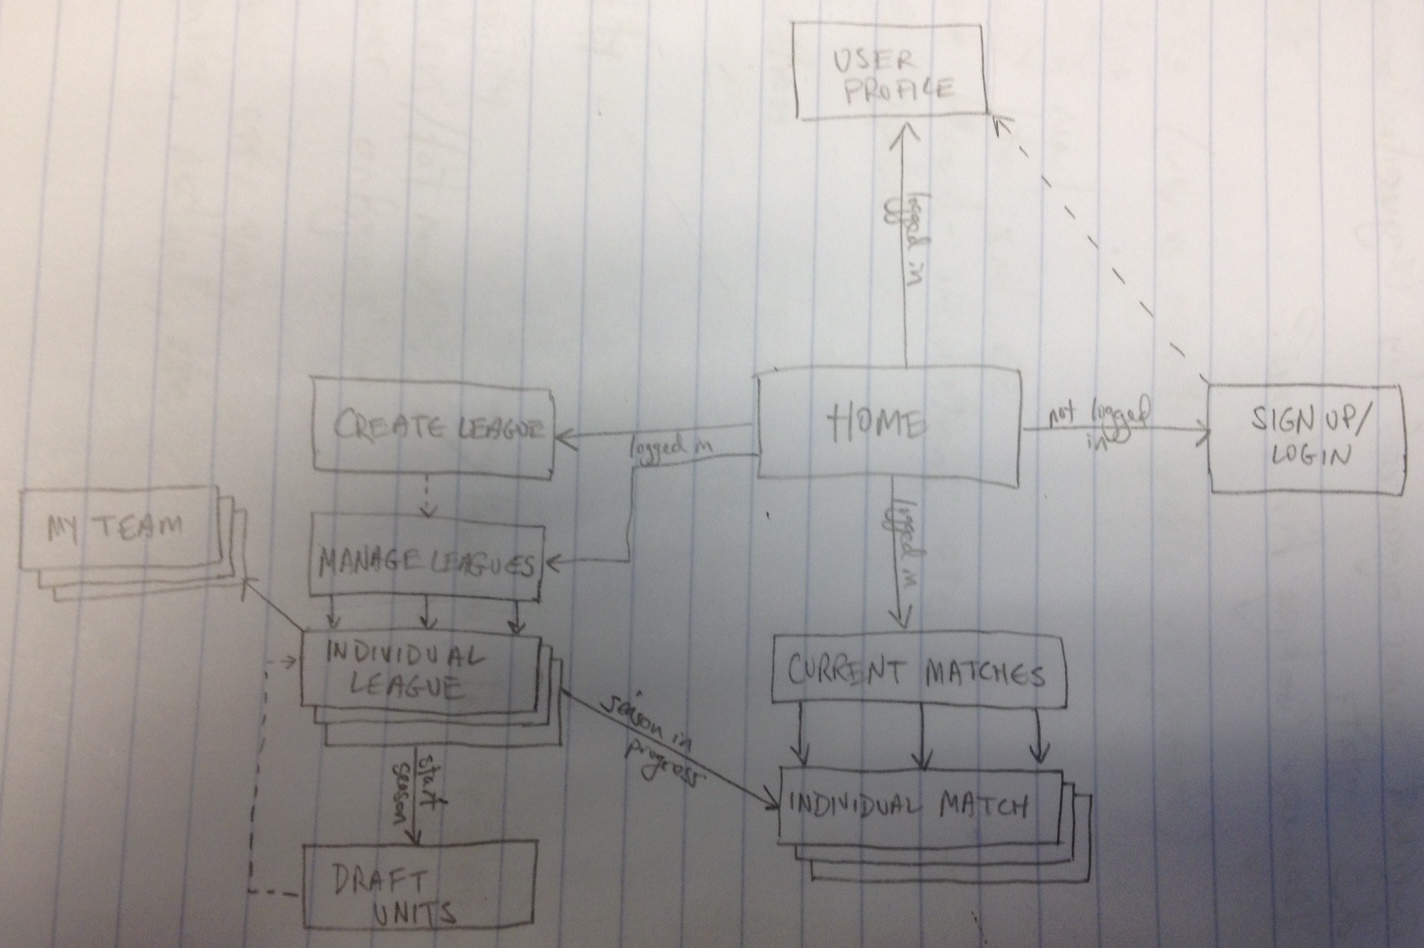 USER
PROFILE
logged in
CREATE LEAGUE
logged in
HOME
not logged
in
SIGN UP/
LOGIN
MY TEAM
MANAGE LEAGUES
logged in
INDIVIDUAL
LEAGUE
CURRENT MATCHES
season in
progress
start
season
INDIVIDUAL MATCH
DRAFT
UNITS